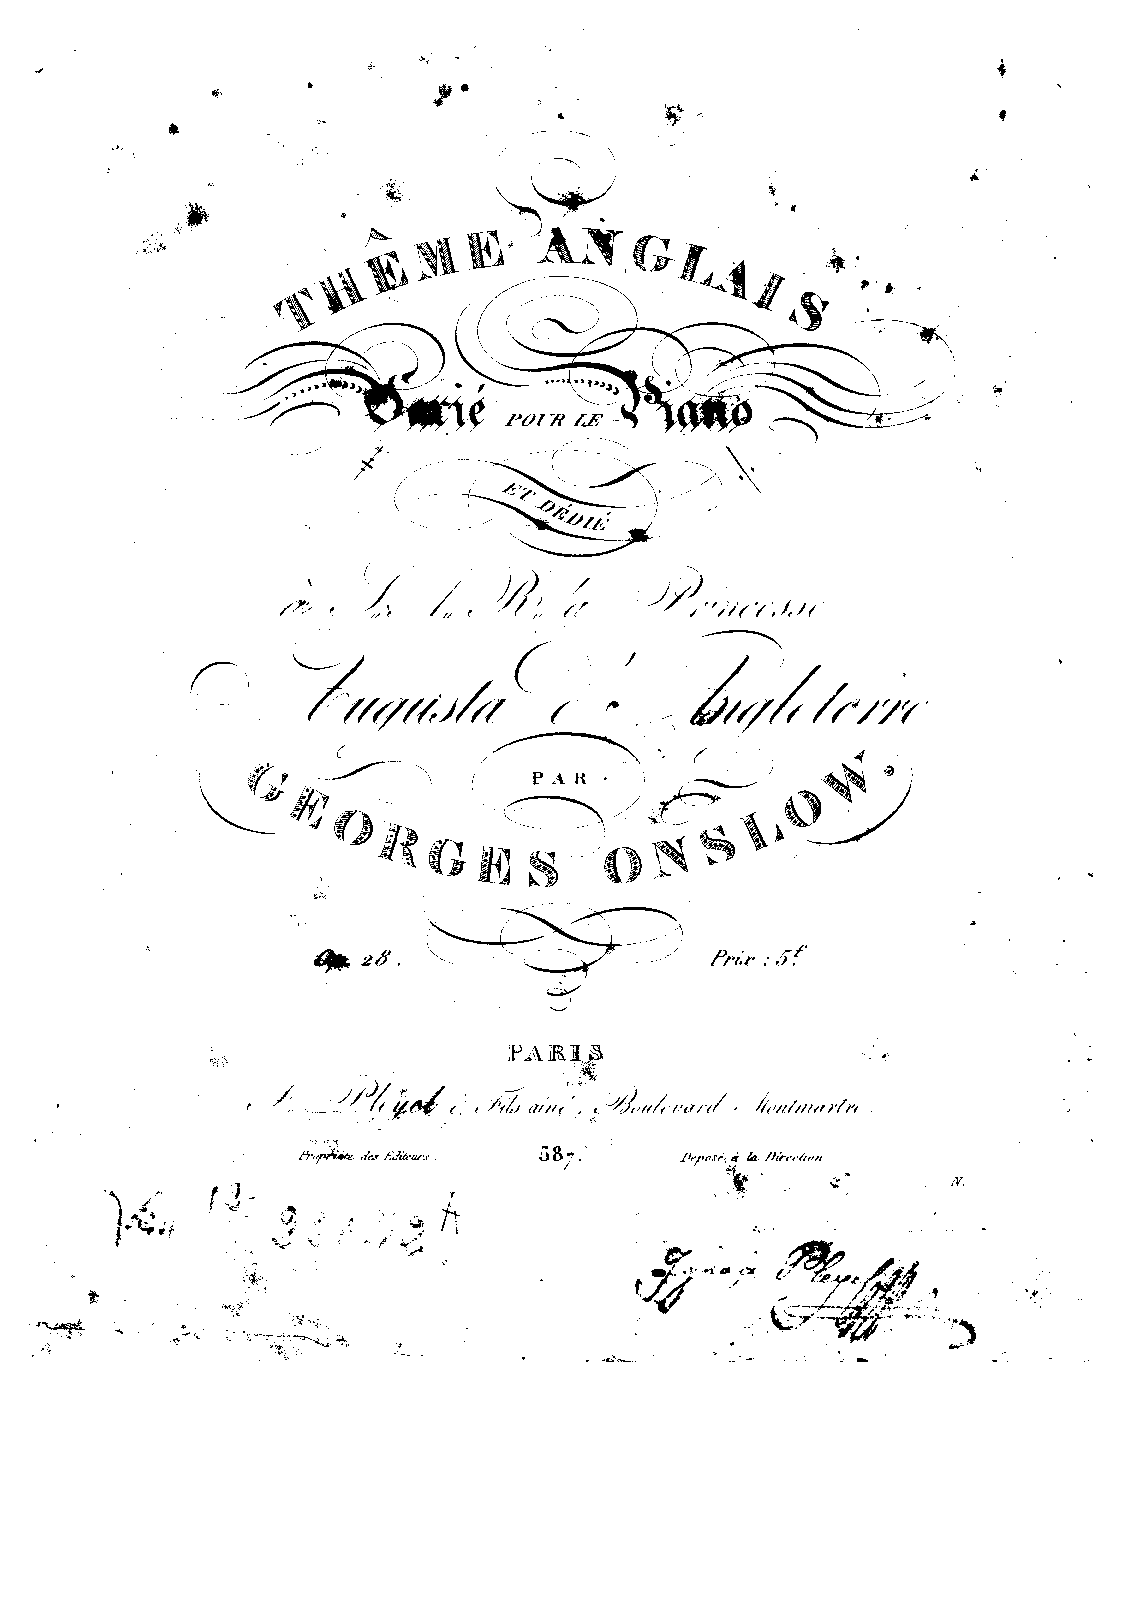 THÊME ANGLAIS
Varié POUR LE Piano
ET DÉDIÉ
à Son R. la Princesse
Augusta d'Angleterre
PAR
GEORGES ONSLOW.
Op. 28. Prix : 5f.
PARIS
Pleyel & Fils ainé, Boulevard Montmartre
Propriété des Editeurs. 587. Déposé à la Direction
Ignace Pleyel